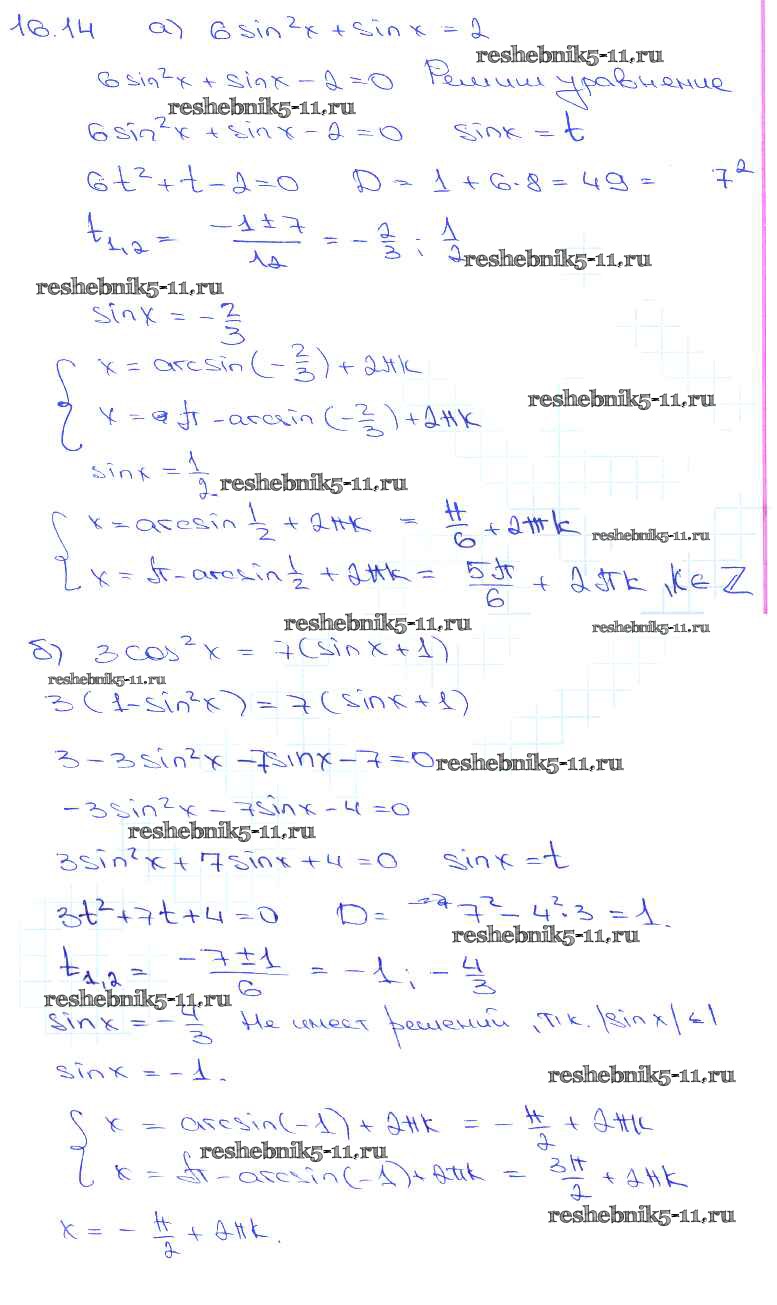 16.14 а) 6sin²x + sinx = 2
reshebnik5-11.ru
6sin²x + sinx - 2 = 0 Решим уравнение
reshebnik5-11.ru
6sin²x + sinx - 2 = 0 sinx = t
6t² + t - 2 = 0 D = 1 + 6·8 = 49 = 7²
t₁,₂ = (-1 ± 7)/12 = -2/3 ; 1/2
reshebnik5-11.ru
reshebnik5-11.ru
sinx = -2/3
{ x = arcsin(-2/3) + 2πk
reshebnik5-11.ru
x = π - arcsin(-2/3) + 2πk
sinx = 1/2
reshebnik5-11.ru
{ x = arcsin 1/2 + 2πk = π/6 + 2πk
reshebnik5-11.ru
x = π - arcsin 1/2 + 2πk = 5π/6 + 2πk, k ∈ Z
reshebnik5-11.ru
reshebnik5-11.ru
б) 3cos²x = 7(sinx + 1)
reshebnik5-11.ru
3(1 - sin²x) = 7(sinx + 1)
3 - 3sin²x - 7sinx - 7 = 0
reshebnik5-11.ru
-3sin²x - 7sinx - 4 = 0
reshebnik5-11.ru
3sin²x + 7sinx + 4 = 0 sinx = t
3t² + 7t + 4 = 0 D = 7² - 4²·3 = 1.
reshebnik5-11.ru
t₁,₂ = (-7 ± 1)/6 = -1; -4/3
reshebnik5-11.ru
sinx = -4/3 Не имеет решений, т.к. |sinx| ≤ 1
sinx = -1.
reshebnik5-11.ru
{ x = arcsin(-1) + 2πk = -π/2 + 2πk
reshebnik5-11.ru
x = π - arcsin(-1) + 2πk = 3π/2 + 2πk
reshebnik5-11.ru
x = -π/2 + 2πk.